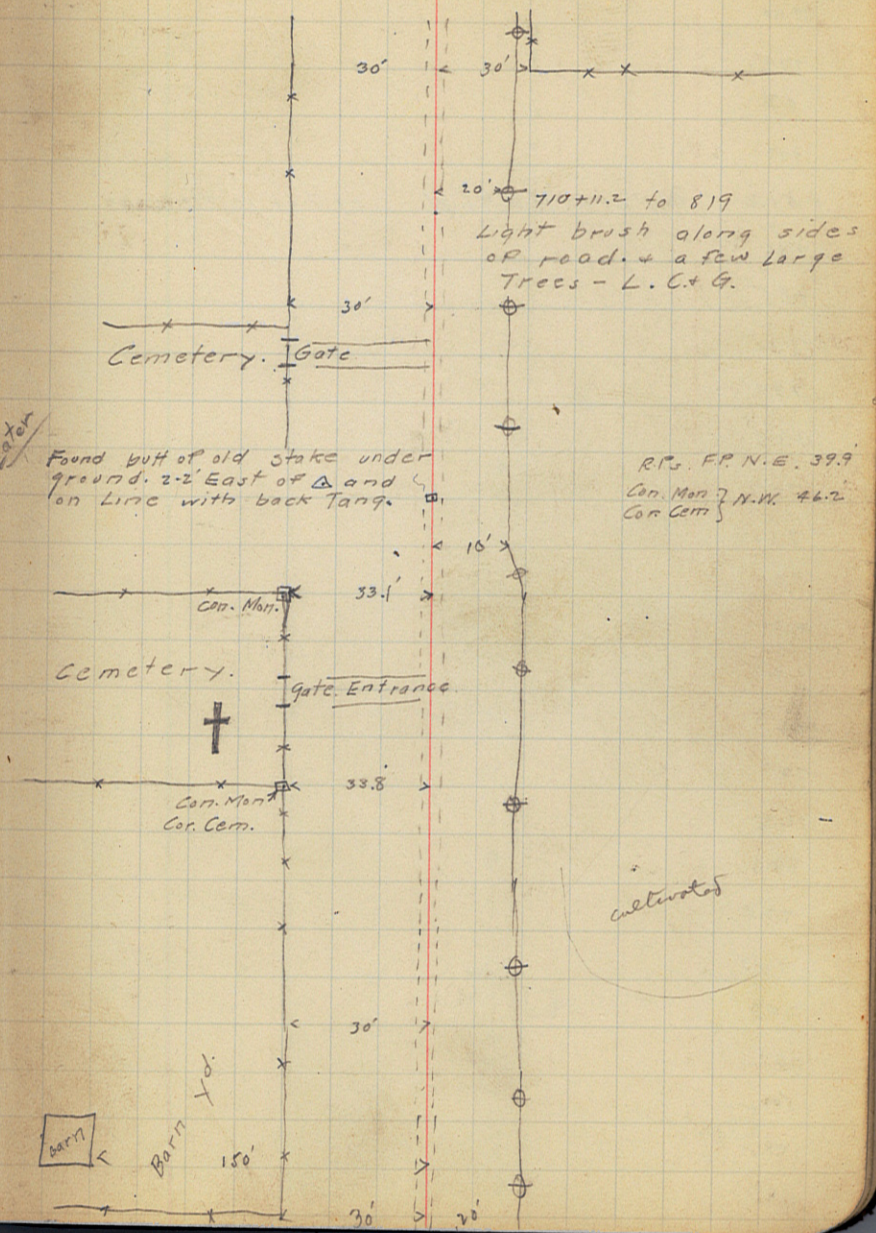 30' 30'
20' 710+11.2 to 819
Light brush along sides
of road. & a few Large
Trees - L. C. & G.
30'
Cemetery. Gate
Found butt of old stake under
ground. 2.2' East of △ and
on Line with back Tang.
R.Ps. F.P. N.E. 39.9
Con. Mon. } N.W. 46.2
Cor. Cem }
10'
33.1'
Con. Mon.
Cemetery.
gate. Entrance
33.8'
Con. Mon
Cor. Cem.
cultivated
30'
Barn Yd.
Barn
150'
30' 20'